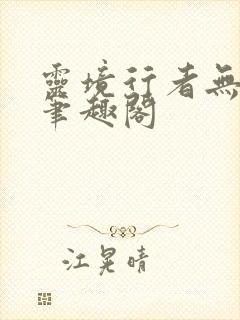 靈境行者無
筆趣閣
江晃晴